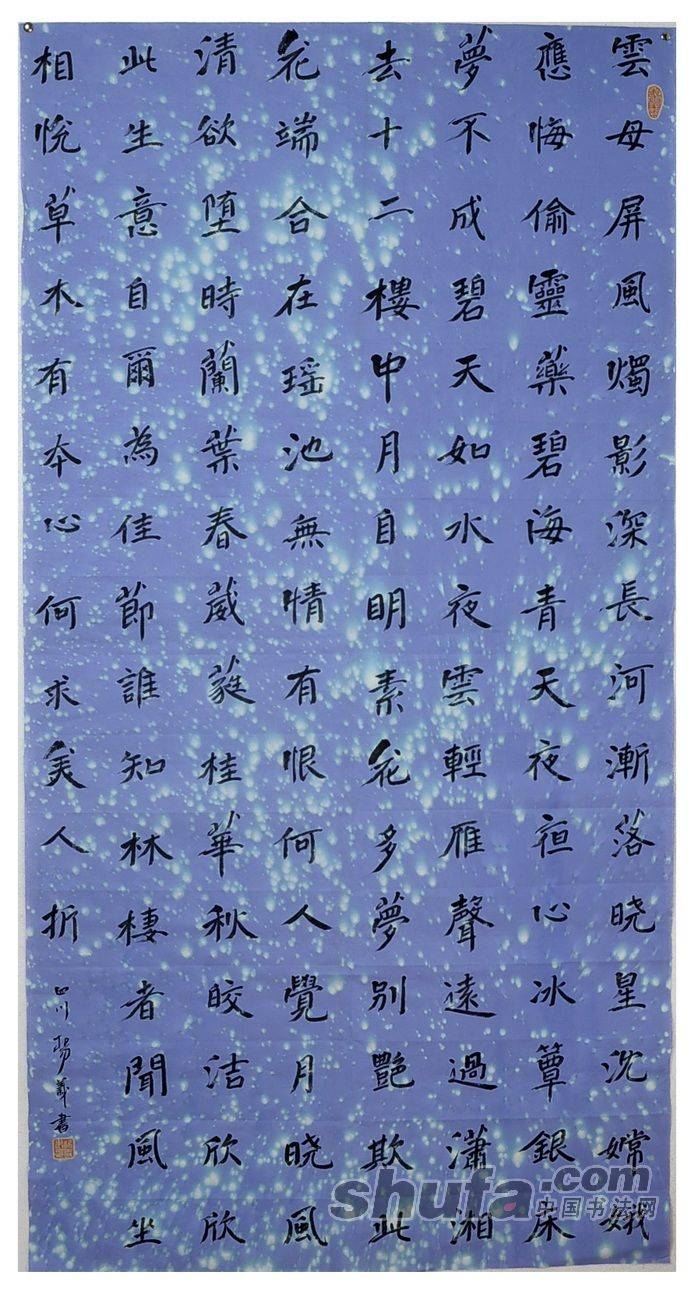 雲母屏風燭影深長河漸落晓星沈嫦娥
應悔偷靈藥碧海青天夜亱心冰簟銀床
夢不成碧天如水夜雲輕雁聲遠過瀟湘
去十二樓中月自明素花多夢別艷欺此
花端合在瑶池無情有恨何人覺月晓風
清欲堕時蘭葉春葳蕤桂華秋皎洁欣欣
此生意自爾為佳節誰知林棲者聞風坐
相悅草木有本心何求美人折
四川楊書
shufa.com
中国书法网